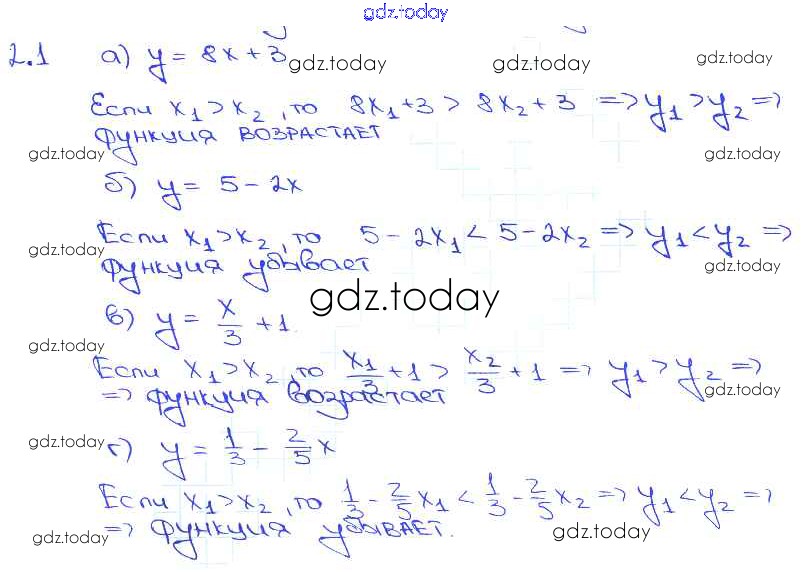 gdz.today
2.1 а) y = 8x + 3 gdz.today gdz.today gdz.today
Если x₁ > x₂, то 8x₁ + 3 > 8x₂ + 3 => y₁ > y₂ =>
функция возрастает
gdz.today gdz.today
б) y = 5 - 2x
Если x₁ > x₂, то 5 - 2x₁ < 5 - 2x₂ => y₁ < y₂ =>
gdz.today
функция убывает gdz.today
в) y = x/3 + 1. gdz.today
gdz.today
Если x₁ > x₂, то x₁/3 + 1 > x₂/3 + 1 => y₁ > y₂ =>
=> функция возрастает gdz.today
gdz.today г) y = 1/3 - 2/5 x
Если x₁ > x₂, то 1/3 - 2/5 x₁ < 1/3 - 2/5 x₂ => y₁ < y₂ =>
gdz.today => функция убывает. gdz.today